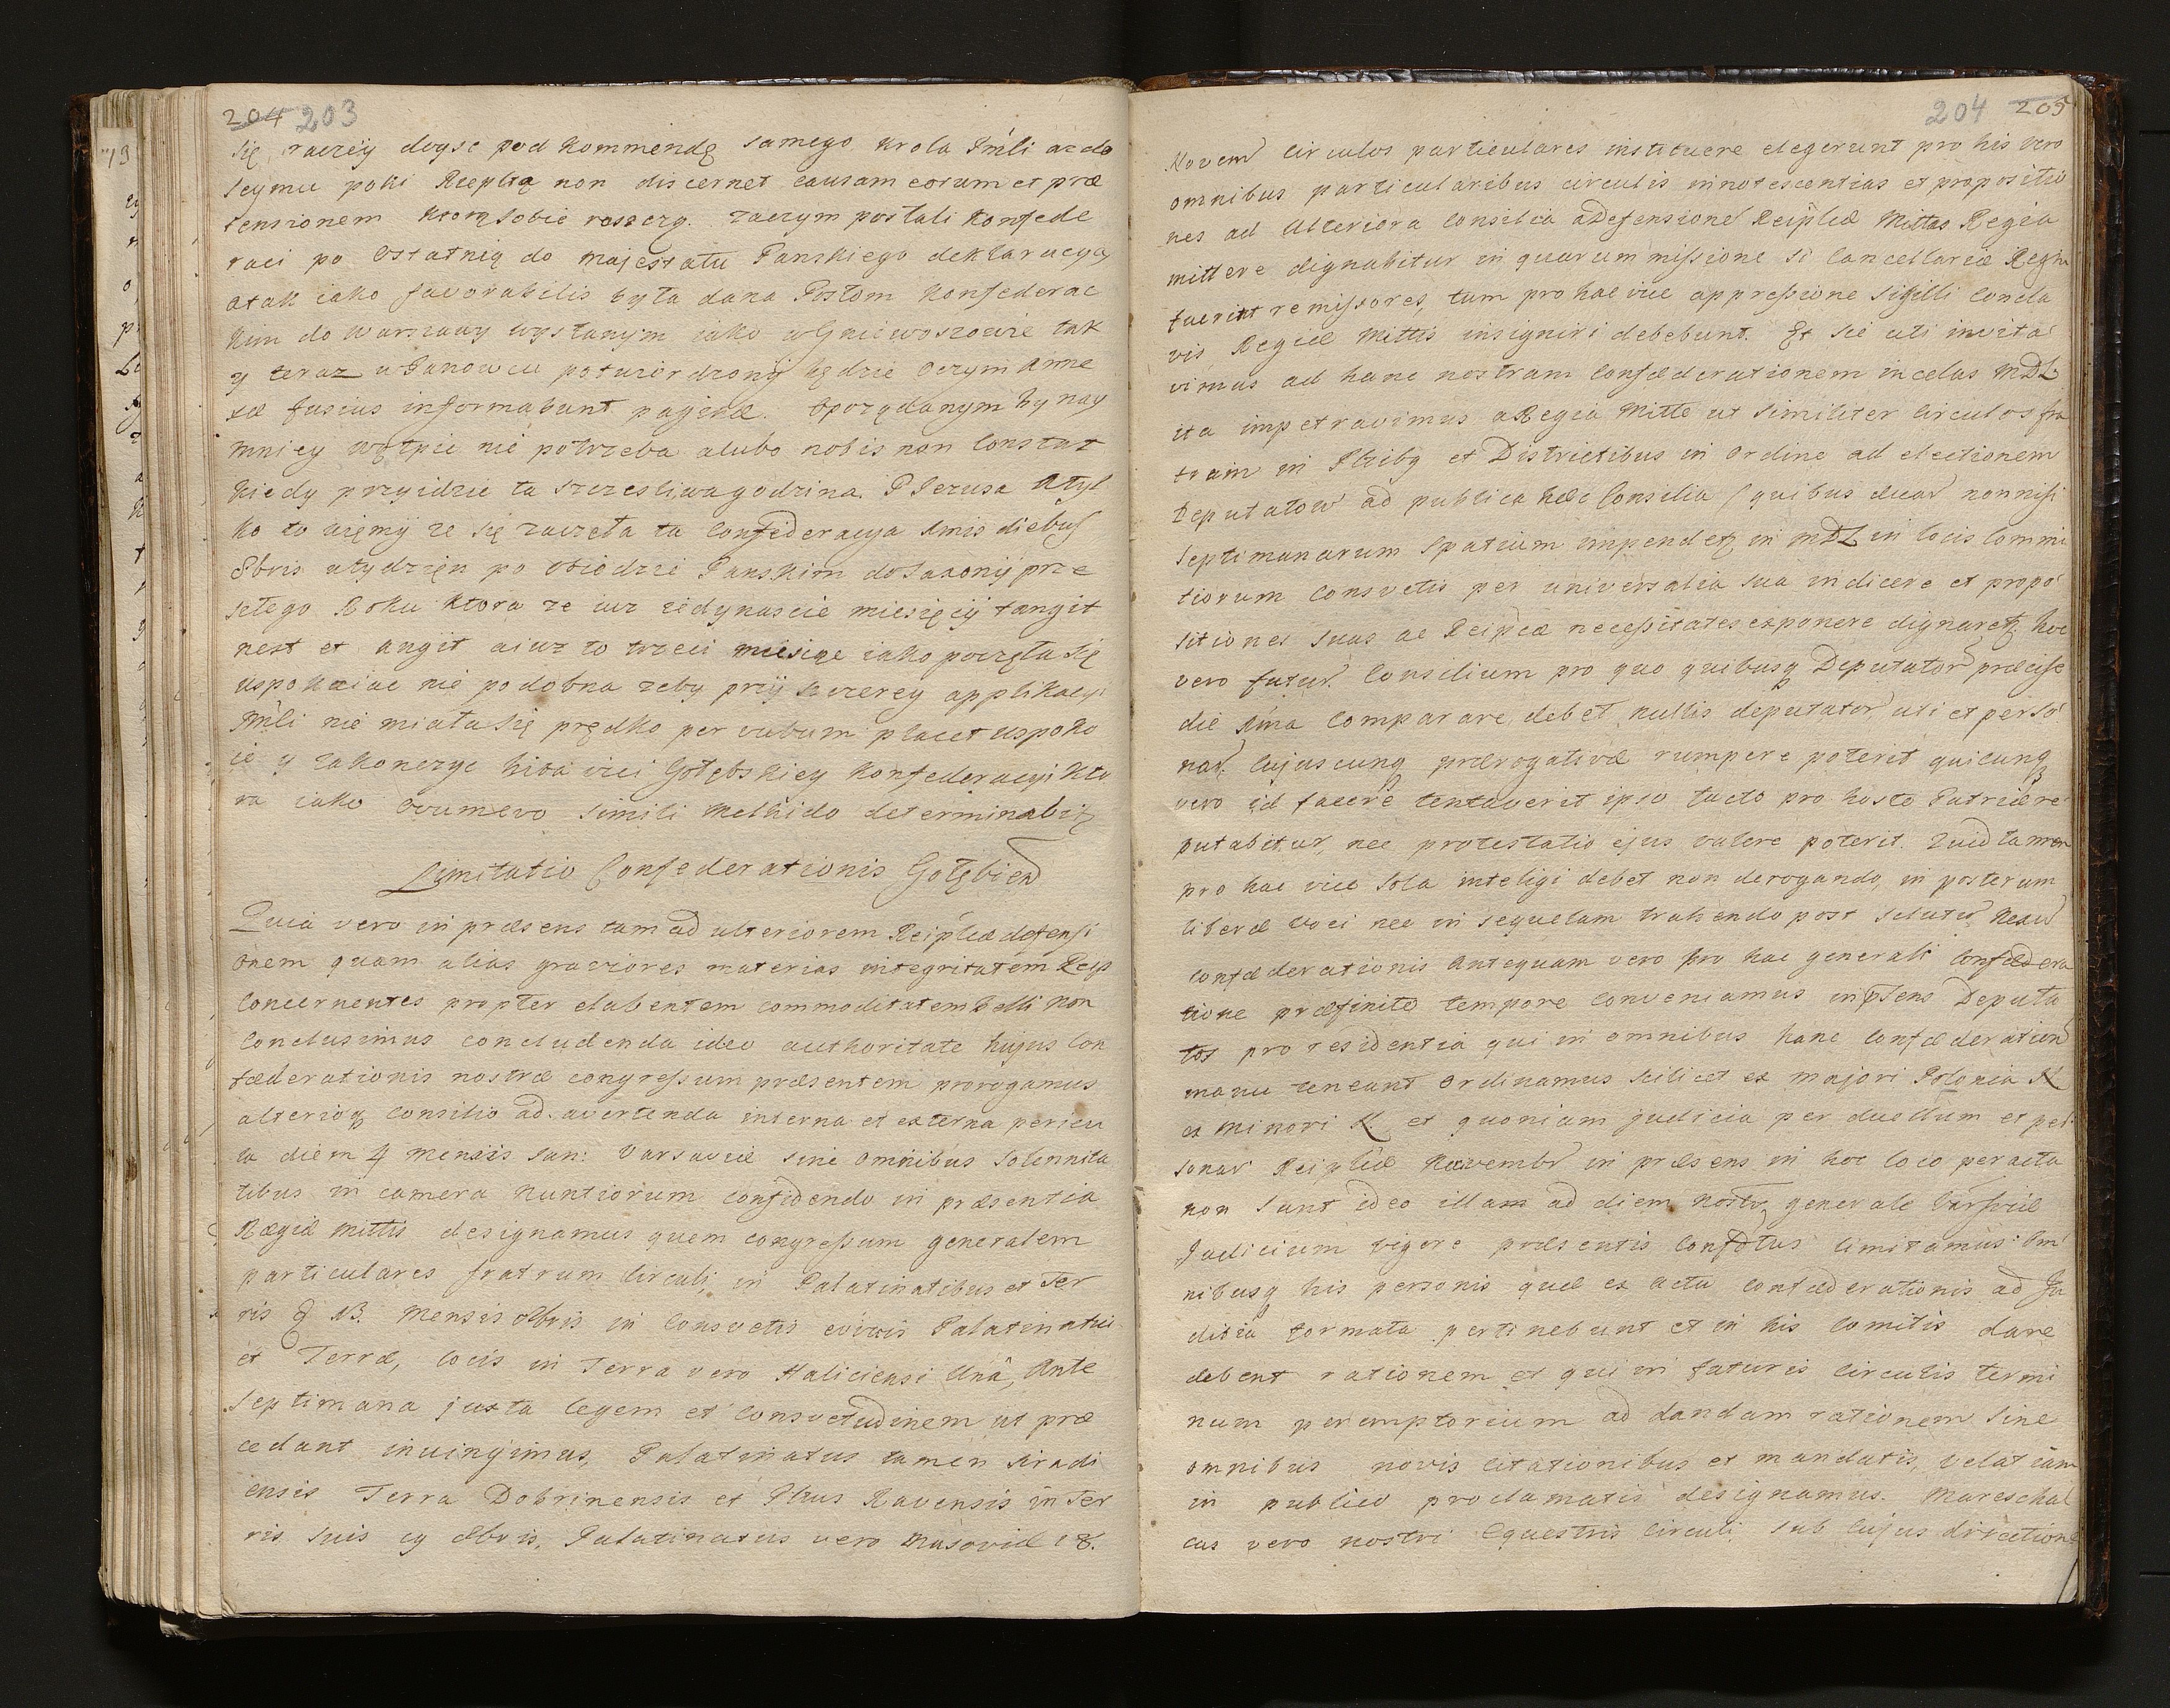 204 203
się, raczey dogsc pod Kommendę samego Krola Jmsci az do
Seymu poki Rzeplta non discernet causam eorum et præ
tensionem ktorą sobie roszczą. zaczym postali Konfede
raci po ostatnią do Majestatu Panskiego deklaracyą
a tak iako favorabilis była dana Posłom Konfederac
kim do Warszawy wysłanym iako w Gniewoszowie tak
y teraz w Janowcu potwierdzony będzie oczym Anne
xæ fusius informabunt paginæ. o porządanym by nay
mniey wątpic nie potrzeba alubo nobis non constat
kiedy przyidzie ta szczesliwa godzina. P Jezusa A tyl
ko to wiemy ze się zaczeła ta Confederacya Imis diebus
8bris a tydzień po obiedzie Panskim do Saxonij prze
szłego Roku ktora ze iuz iedynascie miesięcy tangit
nest et angit a iuz to trzeci miesiąc iako poczęła się
uspokaiac nie podobna zeby przy szczerey applikacyi
Jmsci nie miała się prędko per verbum placet uspoko
ic y zakonczyc hira vici Gołębskiey Konfederacyi kto
ra iako ovum ovo simili Methodo determinabitur
Limitatio Confederationis Gołębien
Quia vero in præsens tam ad ulteriorem Reiplicæ defensi
onem quam alias graviores materias integritatem Reip
concernentes propter elabentem commoditatem Belli non
conclusimus concludenda ideo authoritate hujus Con
fæderationis nostræ congressum præsentem prorogamus
alteriorq consilio ad avertenda interna et externa pericu
la diem 4 Mensis Jan: Varsaviæ sine omnibus Solennita
tibus in camera Nuntiorum confidendo in præsentia
Rægiæ Mittis designamus quem congressum generalem
particulares fratrum circuli, in Palatinatibus et Ter
ris 13. Mensis Xbris in consvetis cujuis Palatinatui
et Terræ, locis in Terra vero Haliciensi Unâ, Ante
Septimana juxta legem et consvetudinem ut præ
cedant invingimus, Palatinatus tamen Siradi
ensis Terra Dobrinensis et Pltus Ravensis in Ter
ris Suis 19 Xbris, Palatinatus vero Masoviæ 18.
204 205
Novem circulos particulares instituere elegerunt pro his vero
omnibus particularibus circulis innotescentias et propositio
nes ad Alteriora Consilia a Defensione Reiplicæ Mittas Regia
mittere dignabitur in quarum missione Si Cancellariæ Regni
fuerint remissores, tum pro hac vice appressione Sigilli concla
vis Regiæ Mittis insigniri debebunt. Et sic uti invita
vimus ad hanc nostram Confæderationem incolas MDL
ita impetravimus a Regia Mitte ut similiter circulos fra
trum in Pltibg et Districtibus in ordine ad electionem
Deputatow ad publica hæc Consilia (quibus duar nonnisi
septimanarum spatium impendet) in MDL in locis Commi
tiorum consvetis per universalia sua indicere et propo
sitiones suas ac Reiplcæ necessitates exponere dignaretr. hoc
vero futur Consilium pro quo quibusq Deputator præcise
die Ima comparare debet nullis deputator, uti et perso
nar, cujuscunq prærogativæ rumpere poterit quicunq
vero id facere tentaverit ipso facto pro hoste Patriæ re
putabitur, nec protestatio ejus valere poterit. Quid tamen
pro hac vice sola inteligi debet non derogando, in posterum
liberæ voci nec in sequelam trahendo post solutu Nexu
confæderationis antequam vero pro hac generali confædera
tione præfinito tempore conveniamus in psens Deputa
tos pro residentia qui in omnibus hanc confæderation
manu teneant ordinamus scilicet ex majori Polonia N
ex Minori N. et quoniam judicia per duellum et per
sonar Reiplicæ Novembr in præsens in hoc loco peracta
non sunt ideo illam ad diem nostr generale Varsviæ
Judicium vigore præsentis Confdtus limitamus. Om
nibusq his personis quæ ex actu confæderationis ad Ju
dicia formata pertinebunt et in his comitis dare
debent rationem et qui in futuris circulis termi
num peremptorium ad dandam rationem sine
omnibus novis citationibus et mandatis, velut iam
in publico proclamatis designamus. Mareschal
cus vero nostri Equestris circuli, sub cujus directione